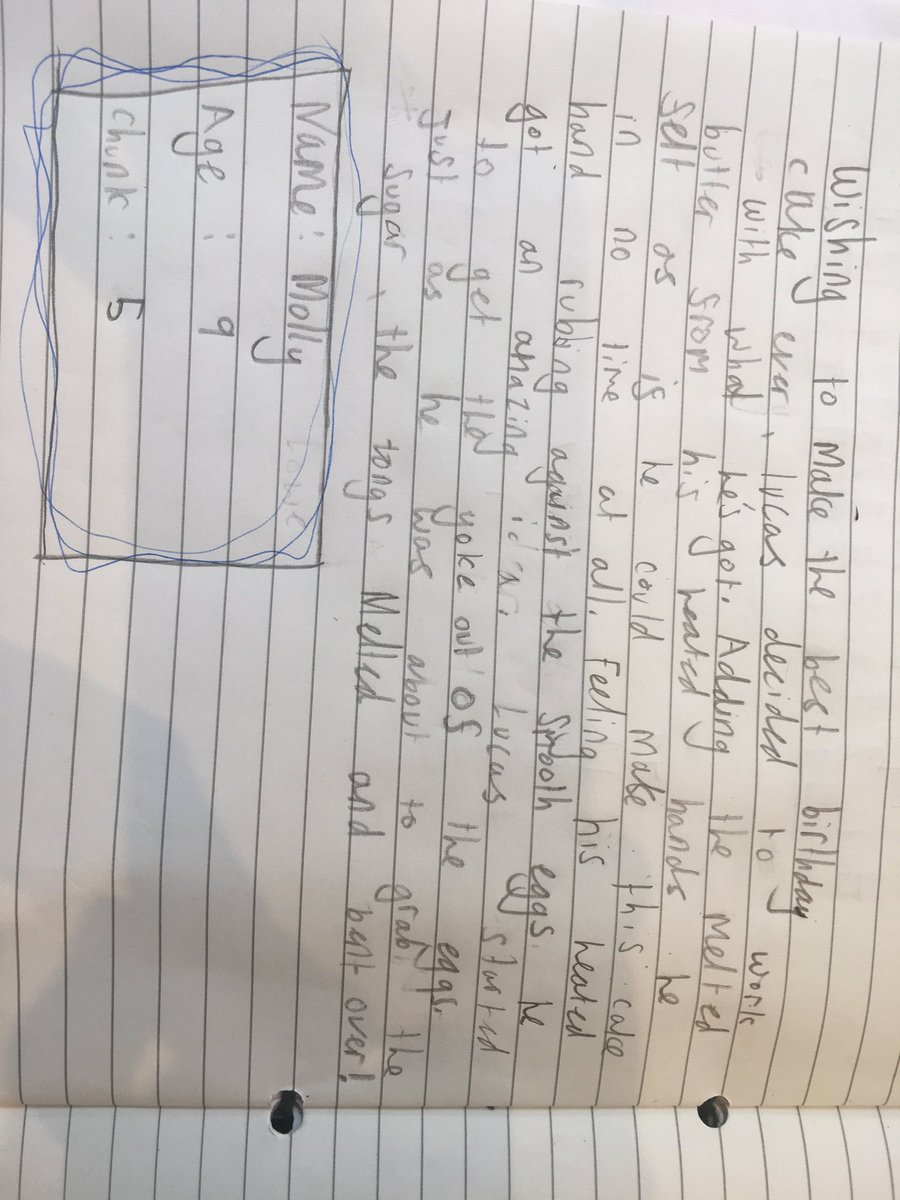 Wishing to make the best birthday
cake ever, lucas decided to work
with what he's got. Adding the melted
butter from his heated hands he
felt as if he could make this cake
in no time at all. Feeling his heated
hand rubbing against the smooth eggs. he
got an amazing idea. Lucas started
to get the yoke out of the eggs.
Just as he was about to grab the
sugar, the tongs Melted and bent over!
Name: Molly
Age: 9
Chunk: 5